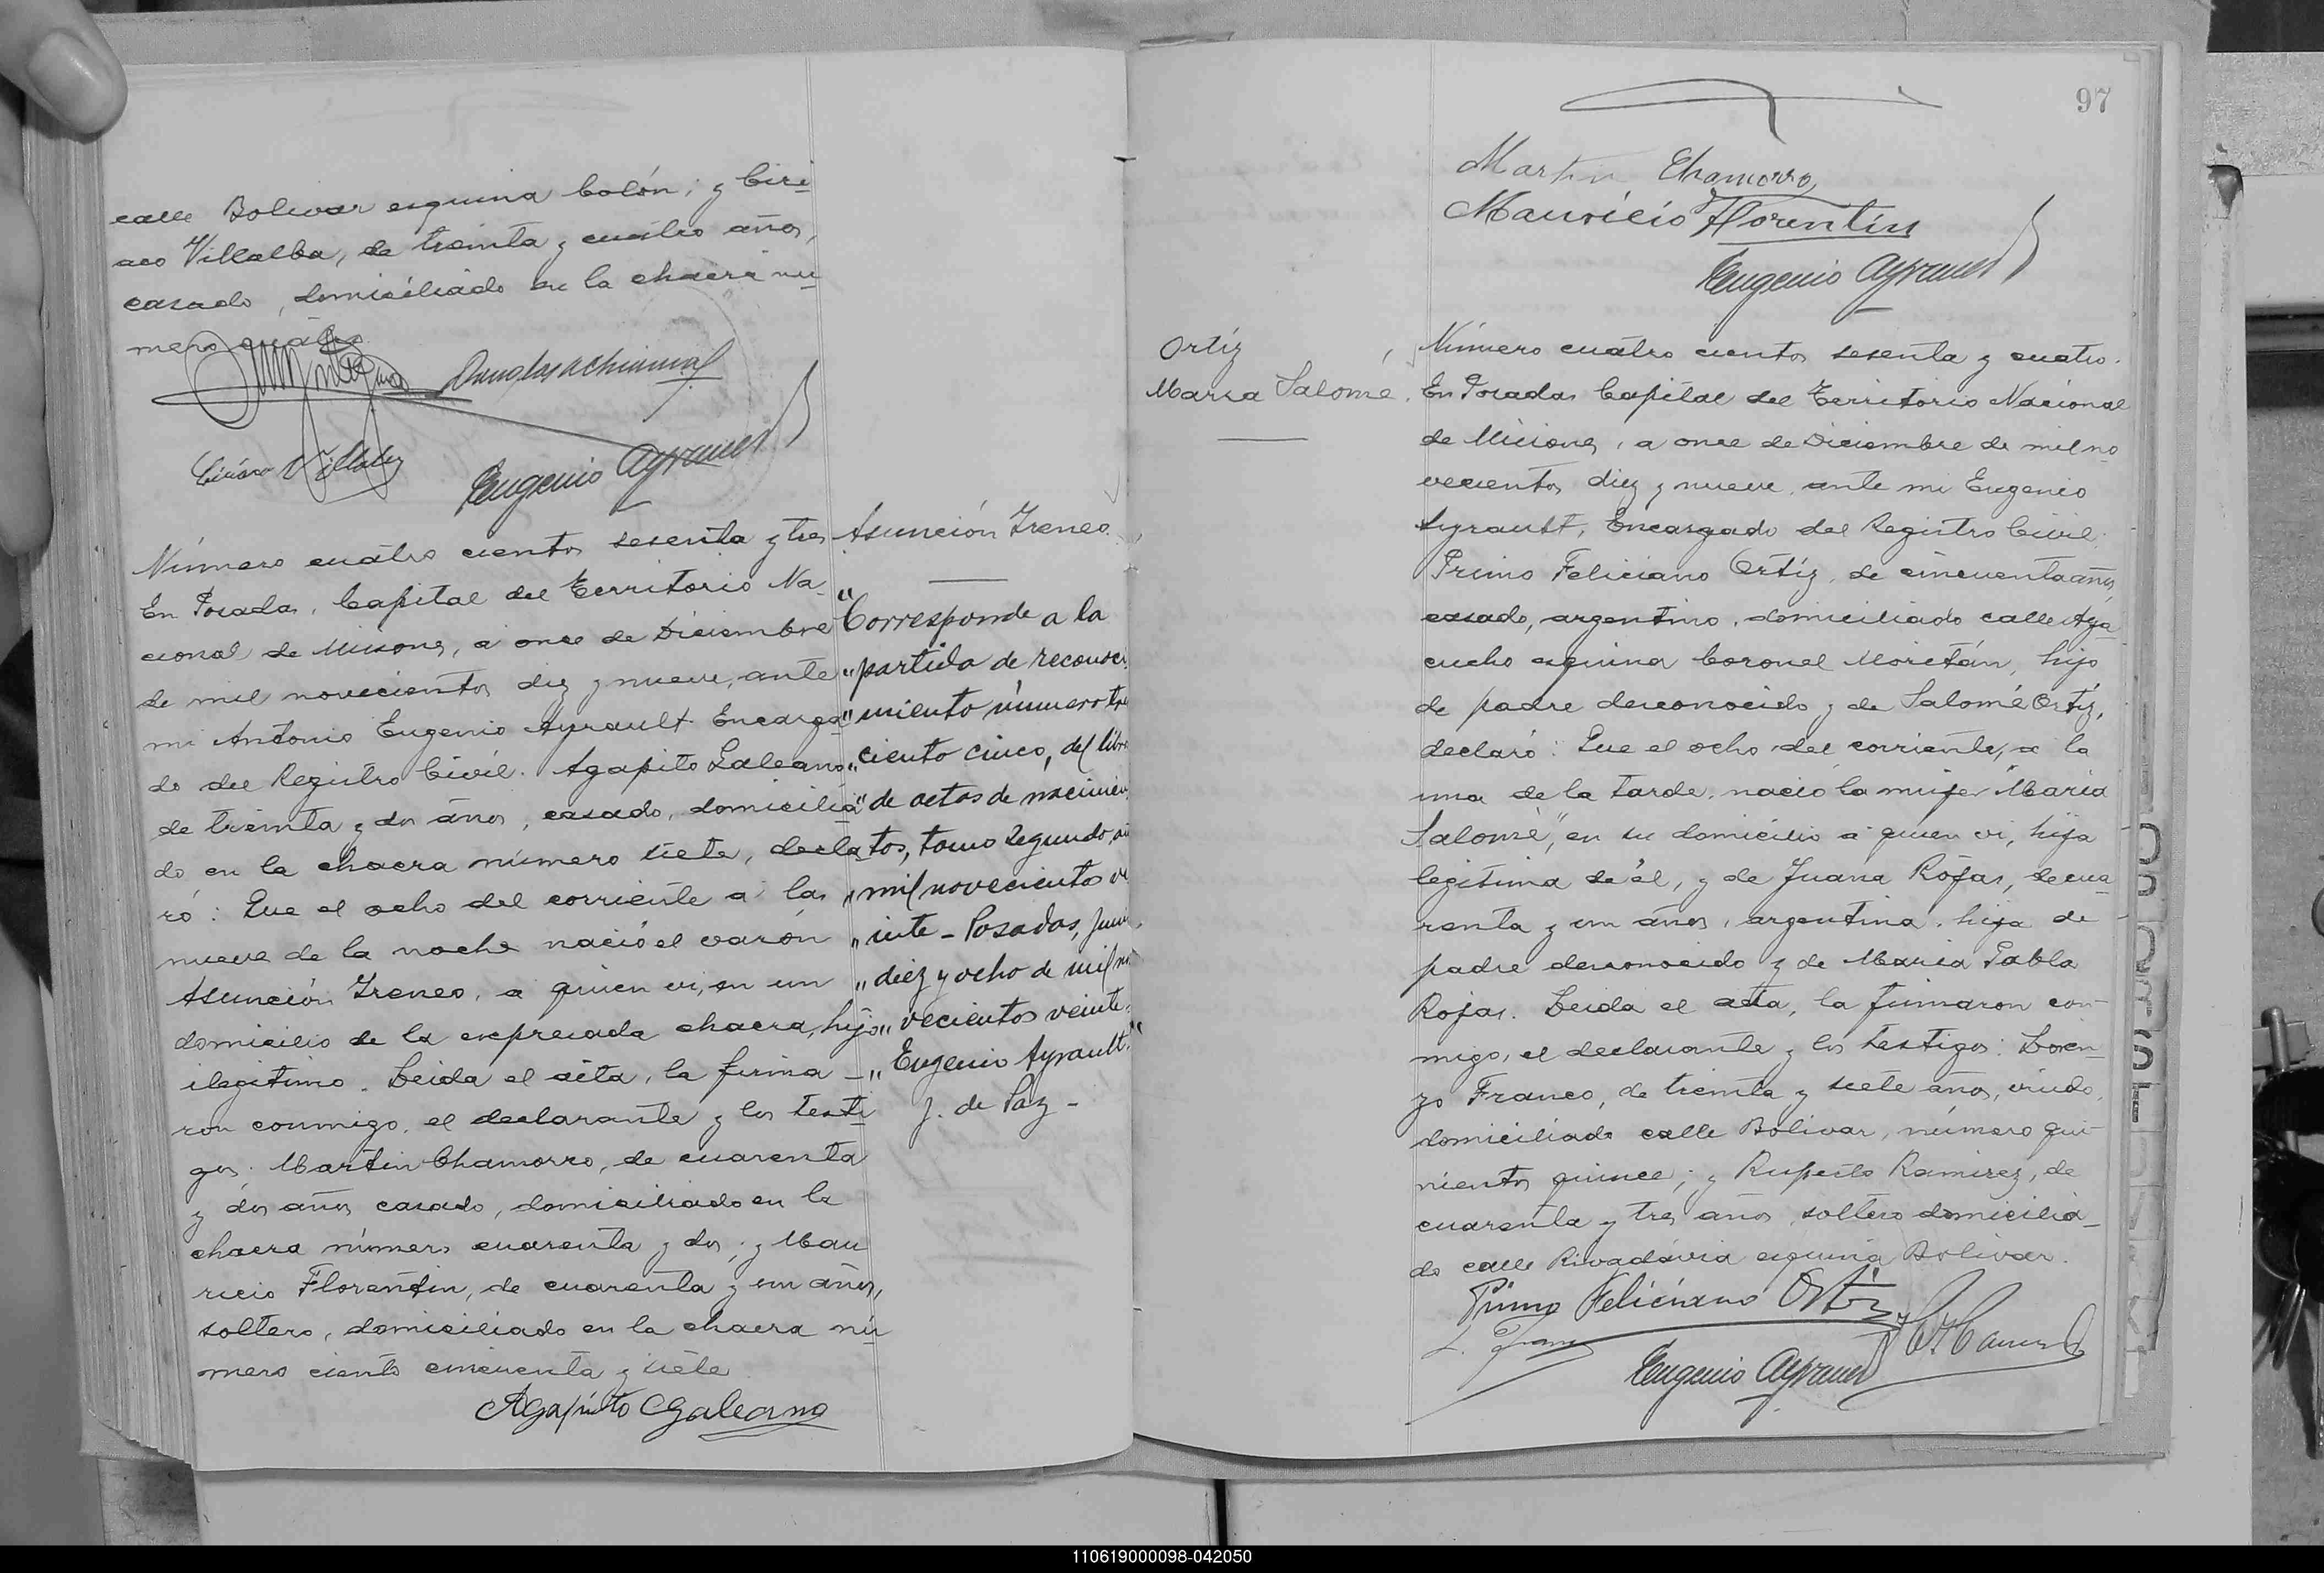 calle Bolivar esquina Colón; y Ciri
aco Villalba, de treinta y cuatro años,
casado, domiciliado en la chacra nu
mero cuatro
Douglas
Ciriaco Villalba
Eugenio Ayrault
Número cuatro cientos sesenta y tres
En Posadas, Capital del Territorio Na-
cional de Misiones, a once de Diciembre
de mil novecientos diez y nueve, ante
mi Antonio Eugenio Ayrault Encarga
do del Registro Civil. Agapito Galeano
de treinta y dos años, casado, domicilia
do en la chacra número siete, decla
ró: Que el ocho del corriente a las
nueve de la noche nació el varón
Asunción Ireneo, a quien vi, en un
domicilio de la expresada chacra, hijo
ilegitimo. Leida el acta, la firma-
ron conmigo, el declarante y los testi
gos: Martin Chamorro, de cuarenta
y dos años casado, domiciliado en la
chacra número cuarenta y dos; y Mau
ricio Florentin, de cuarenta y un años,
soltero, domiciliado en la chacra nú
mero ciento cincuenta y siete
Agapito Galeano
Asunción Ireneo.
"Corresponde a la
"partida de reconoci
"miento número tre
"ciento cinco, del libro
"de actas de nacimien
tos, tomo segundo,
"mil novecientos ve
"inte - Posadas, Junio
"diez y ocho de mil no
"vecientos veinte.
"Eugenio Ayrault."
J. de Paz -
97
Martin Chamorro
Mauricio Florentin
Eugenio Ayrault
Ortiz
Maria Salomé.
Número cuatro cientos sesenta y cuatro.
En Posadas Capital del Territorio Nacional
de Misiones, a once de Diciembre de mil no
vecientos diez y nueve, ante mi Eugenio
Ayrault, Encargado del Registro Civil:
Primo Feliciano Ortiz, de cincuenta años,
casado, argentino, domiciliado calle Aya
cucho esquina Coronel Moritán, hijo
de padre desconocido y de Salomé Ortiz,
declaró: Que el ocho del corriente, a la
una de la tarde, nació la mujer "Maria
Salomé", en su domicilio a quien vi, hija
legitima de él, y de Juana Rojas, de cua
renta y un años, argentina, hija de
padre desconocido y de Maria Pabla
Rojas. Leida el acta, la firmaron con-
migo, el declarante y los testigos: Loren-
zo Franco, de treinta y siete años, viudo,
domiciliado calle Bolivar, número qui-
nientos quince; y Ruperto Ramirez, de
cuarenta y tres años, soltero domicilia-
do calle Rivadavia esquina Bolivar.
Primo Feliciano Ortiz
L. Franco
Eugenio Ayrault
110619000098-042050